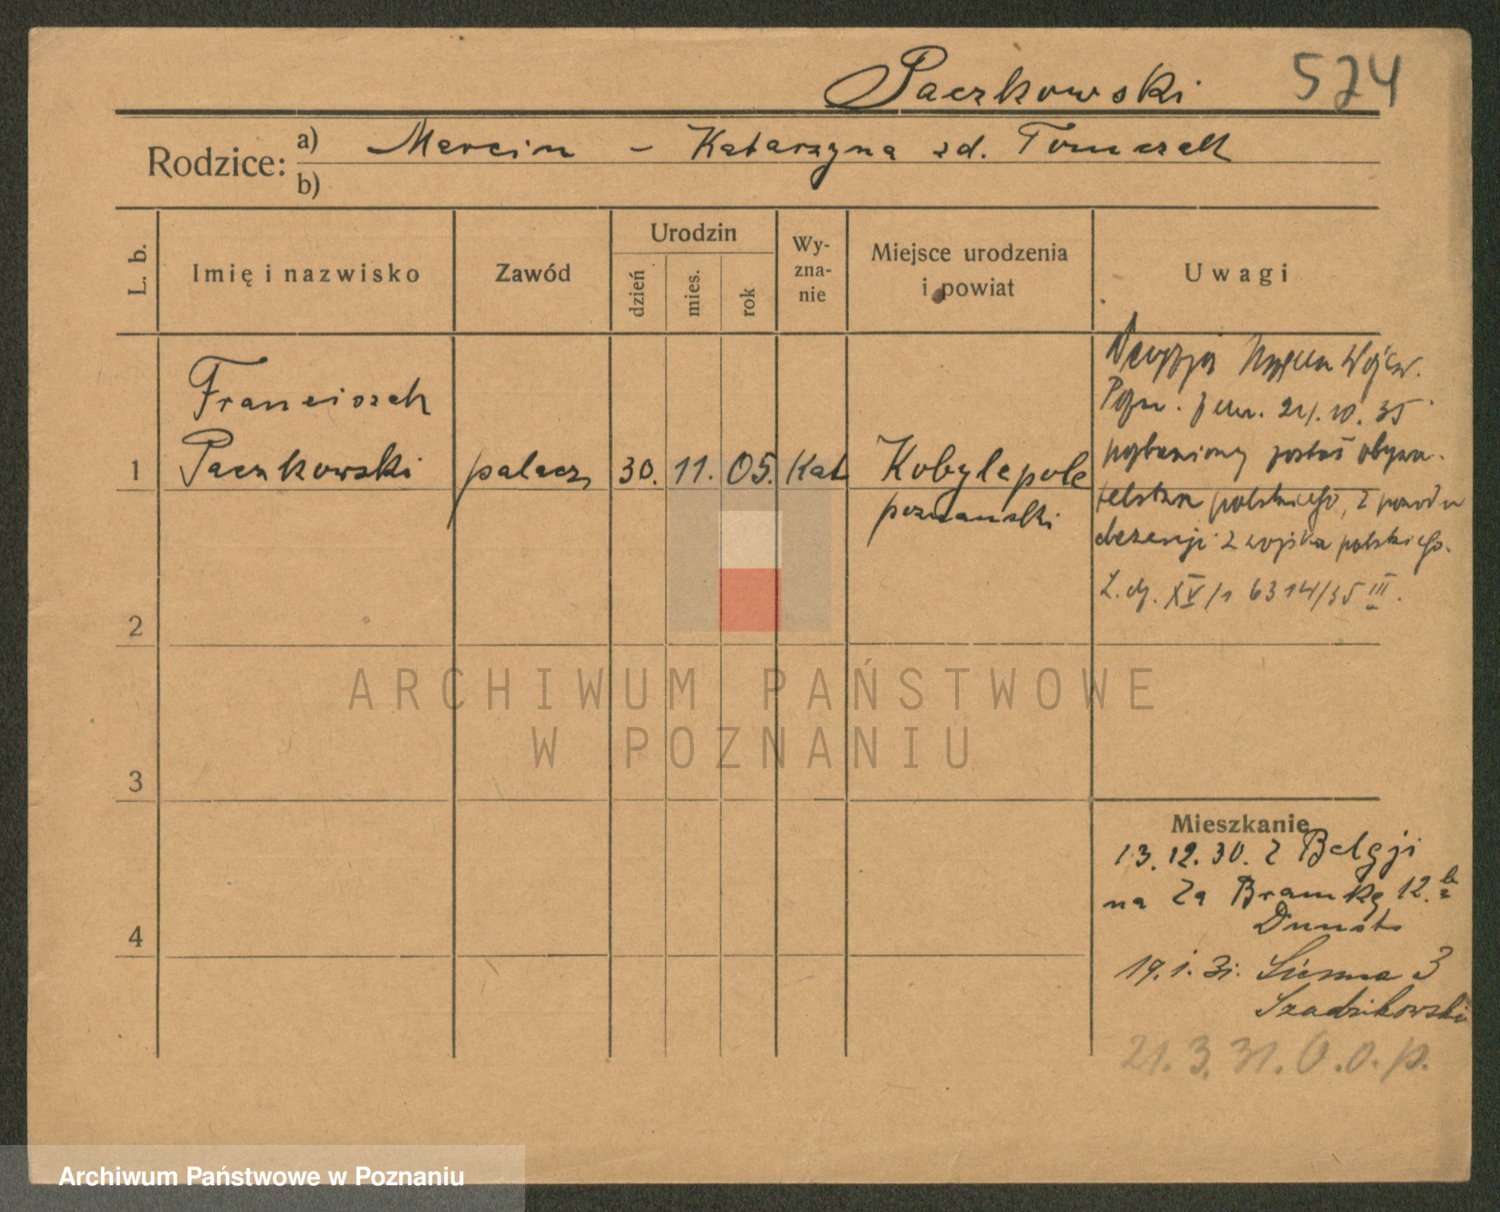 Paczkowski 524
Rodzice: a) Marcin – Katarzyna zd. Tomczak
b)
L. b. Imię i nazwisko Zawód Urodzin dzień mies. rok Wy-zna-nie Miejsce urodzenia i powiat Uwagi
Franciszek
1 Paczkowski palacz 30. 11. 05. Kat Kobylepole
poznański
Decyzją Wojew.
Pozn. z dn. 24.10.35
pozbawiony został obywa-
telstwa polskiego, z powodu
dezercji z wojska polskiego.
L. dz. XV/1 6314/35 III.
2
3
4
Mieszkanie
13.12.30. z Belgji
na Za Bramką 12.
19.1.31. Sienna 3
Szadzikowski
21.3.31. O.o.p.
ARCHIWUM PAŃSTWOWE
W POZNANIU
Archiwum Państwowe w Poznaniu